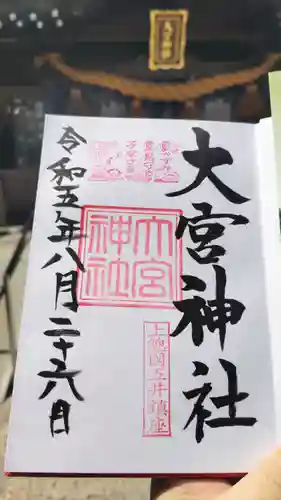 大宮神社
上総国五井鎮座
大宮
神社
令和五年八月二十六日